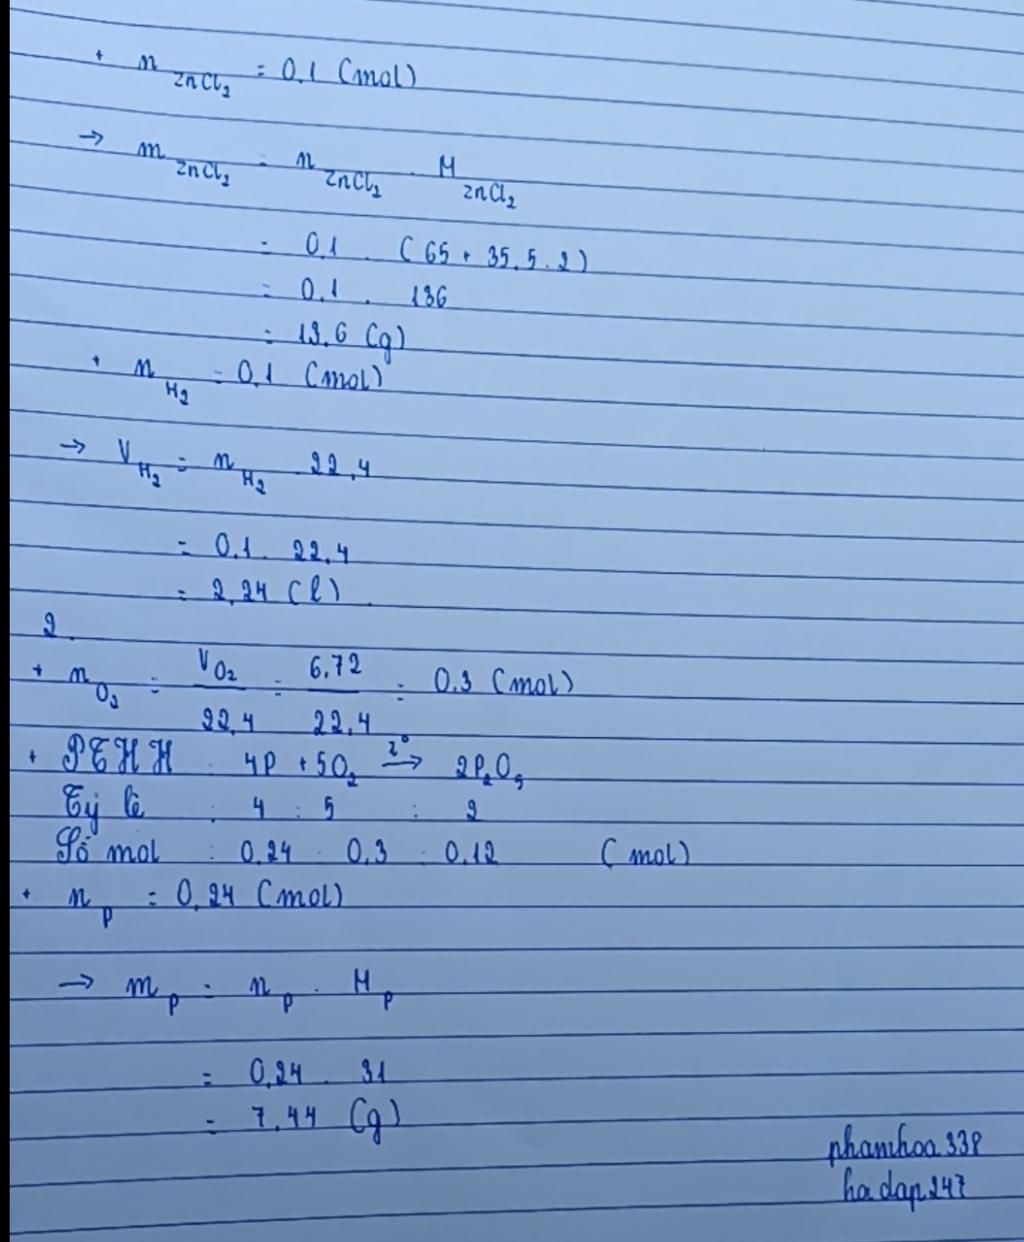 + n ZnCl₂ = 0,1 (mol)
→ m ZnCl₂ = n ZnCl₂ . M ZnCl₂
= 0,1 . (65 + 35,5.2)
= 0,1 . 136
= 13,6 (g)
+ n H₂ = 0,1 (mol)
→ V H₂ = n H₂ . 22,4
= 0,1 . 22,4
= 2,24 (l).
2.
+ n O₂ = V O₂ / 22,4 = 6,72 / 22,4 = 0,3 (mol)
+ PTHH : 4P + 5O₂ t°→ 2P₂O₅
Tỷ lê : 4 : 5 : 2
Số mol : 0,24 : 0,3 : 0,12 (mol)
+ n P = 0,24 (mol)
→ m P = n P . M P
= 0,24 . 31
= 7,44 (g)
phamhoa338
hadap247